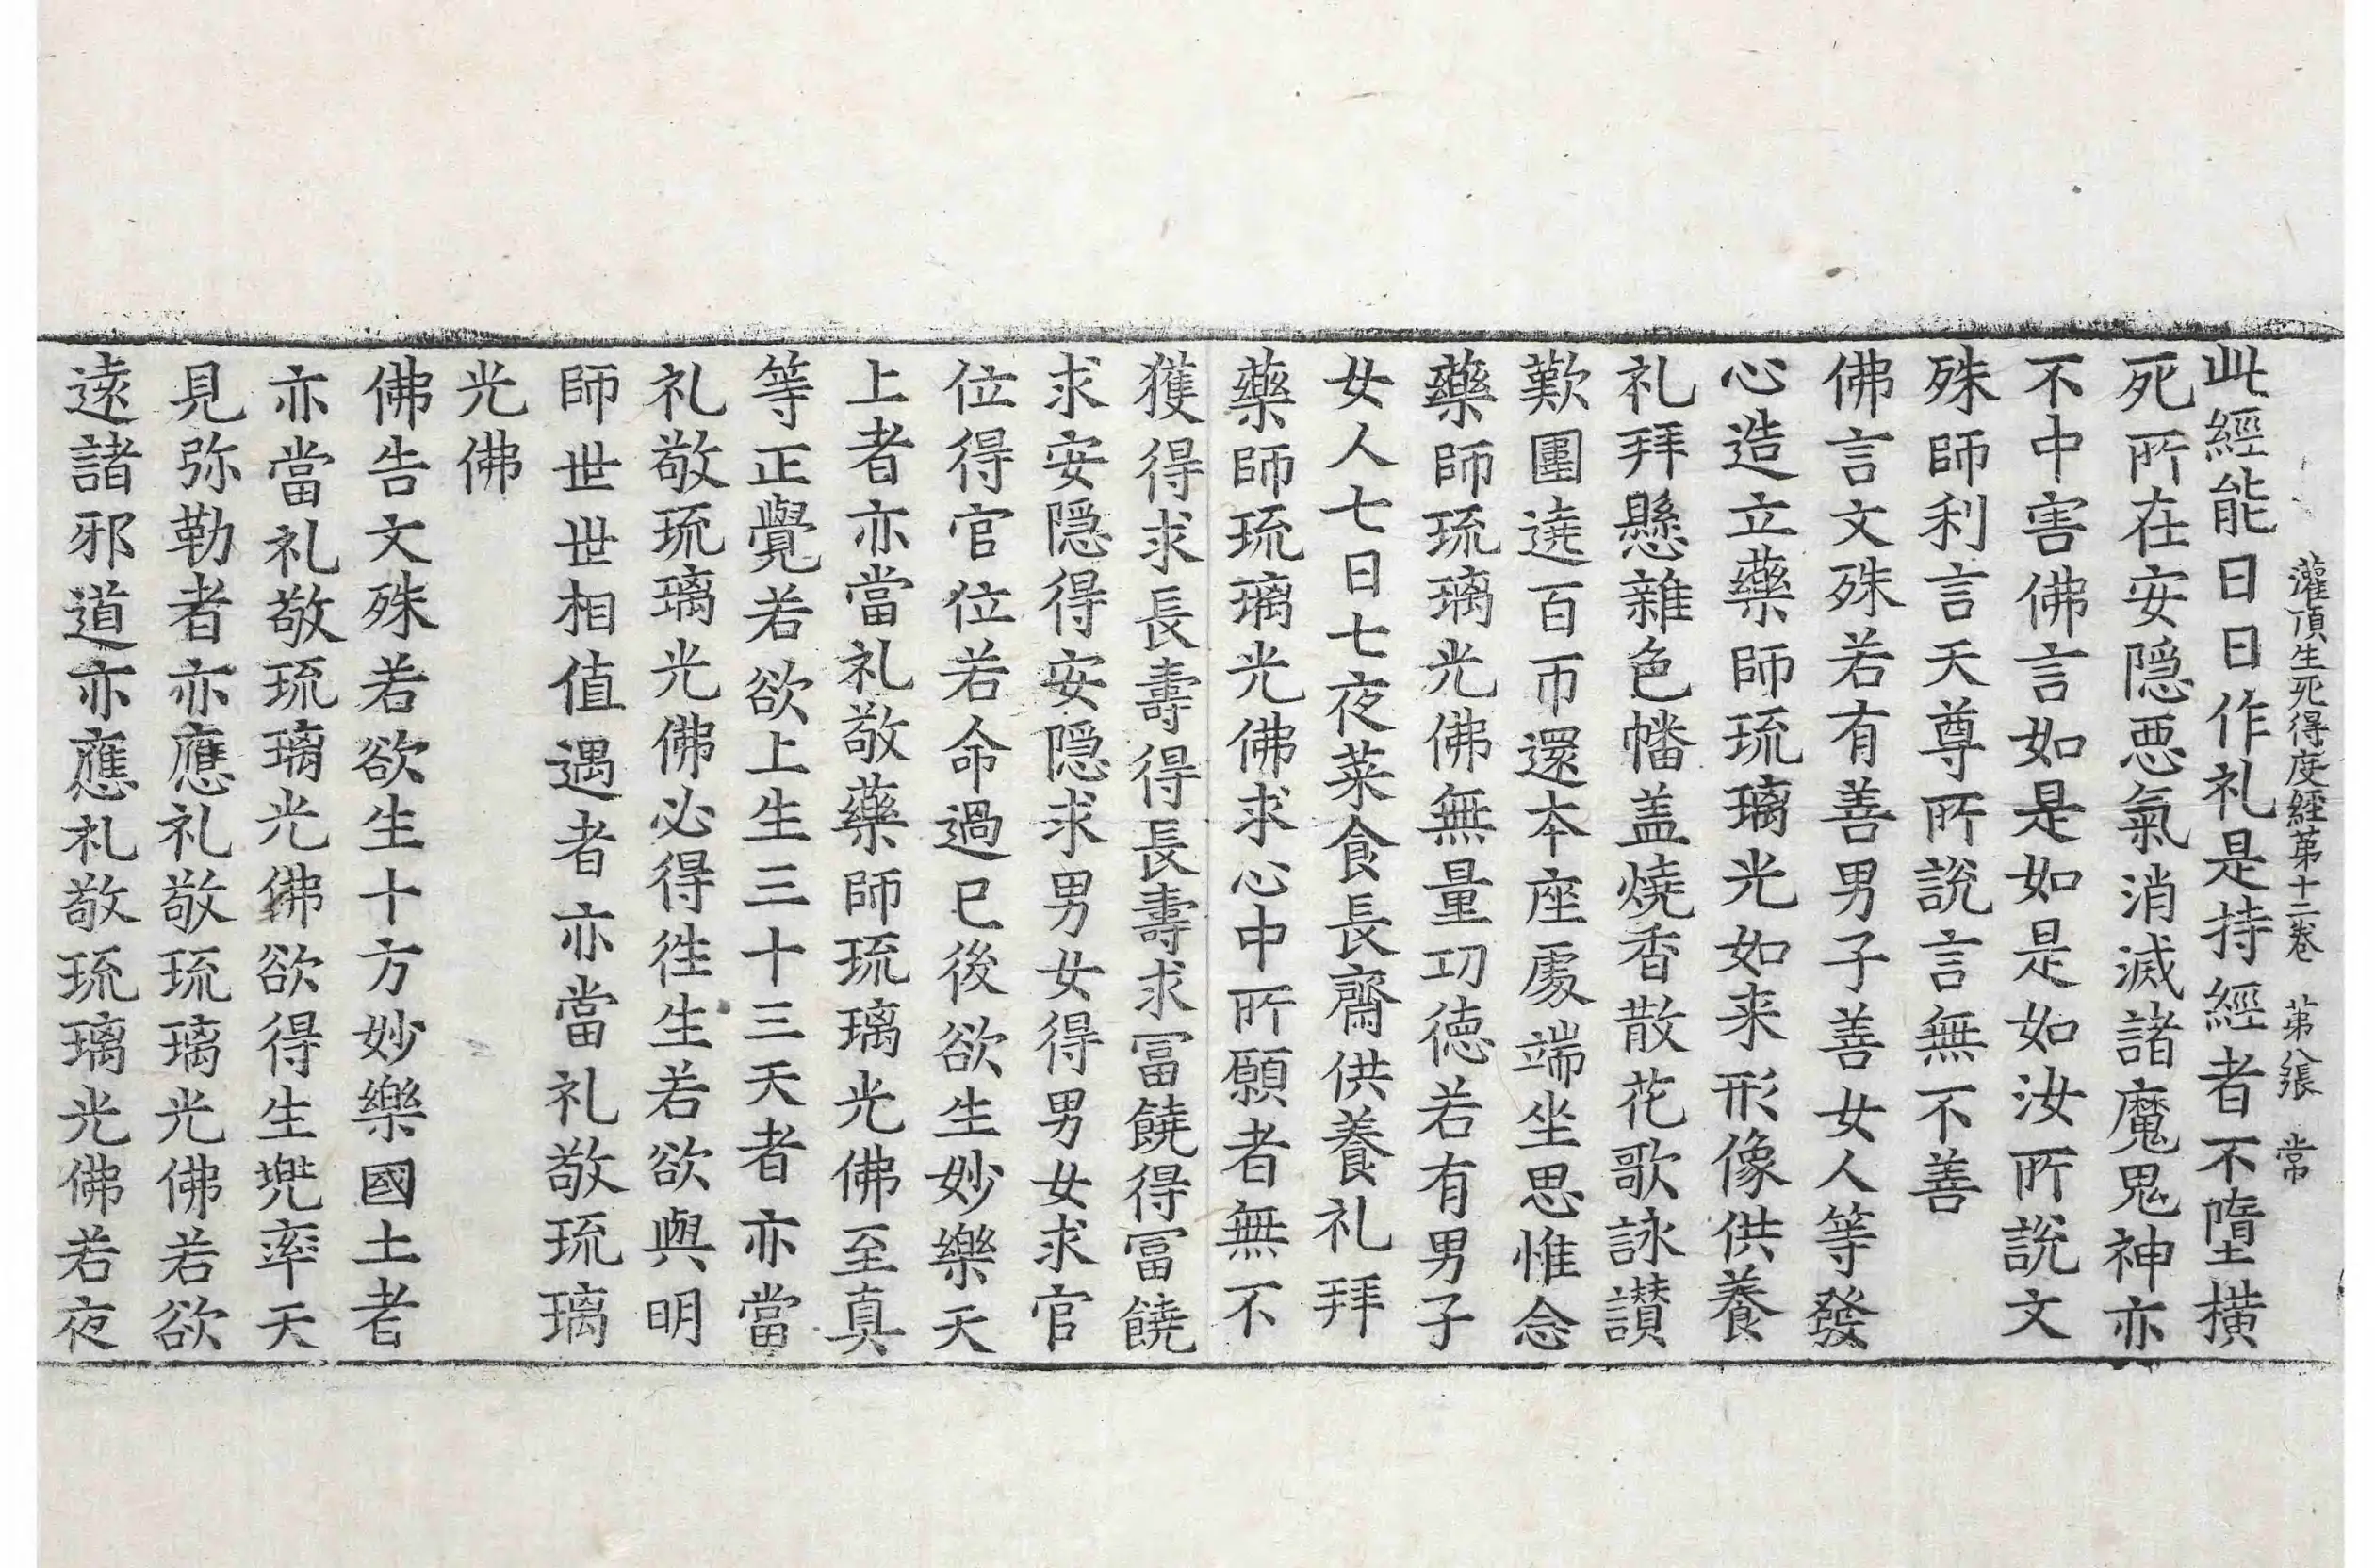 灌頂生死得度經第十二卷　第八張　常
此經能日日作礼是持經者不墮橫
死所在安隠悪氣消滅諸魔鬼神亦
不中害佛言如是如是如汝所說文
殊師利言天尊所說言無不善
佛言文殊若有善男子善女人等發
心造立藥師琉璃光如来形像供養
礼拜懸雜色幡盖燒香散花歌詠讃
歎圍遶百帀還本座處端坐思惟念
藥師琉璃光佛無量功徳若有男子
女人七日七夜菜食長齋供養礼拜
藥師琉璃光佛求心中所願者無不
獲得求長壽得長壽求冨饒得冨饒
求安隠得安隠求男女得男女求官
位得官位若命過已後欲生妙樂天
上者亦當礼敬藥師琉璃光佛至真
等正覺若欲上生三十三天者亦當
礼敬琉璃光佛必得徃生若欲與明
師世世相值遇者亦當礼敬琉璃
光佛
佛告文殊若欲生十方妙樂國土者
亦當礼敬琉璃光佛欲得生兠率天
見弥勒者亦應礼敬琉璃光佛若欲
逺諸邪道亦應礼敬琉璃光佛若夜